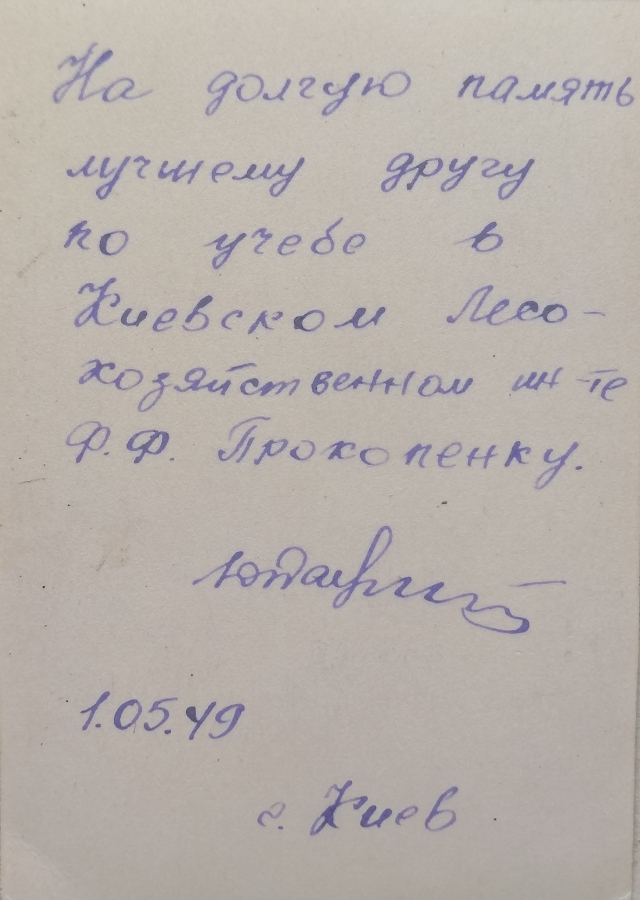 На долгую память
лучшему другу
по учебе в
Киевском Лесо-
хозяйственном ин-те
Ф.Ф. Прокопенку.
1.05.49
г. Киев